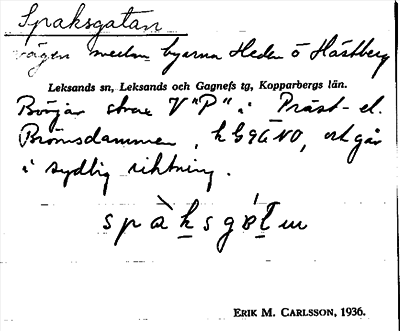 Spaksgatan
vägen mellan byarna Heden o Hästberg
Leksands sn, Leksands och Gagnefs tg, Kopparbergs län.
Börjar strax V "P" i Präst- el.
Brömsdammen, och går
i sydlig riktning.
spàksgátm
ERIK M. CARLSSON, 1936.